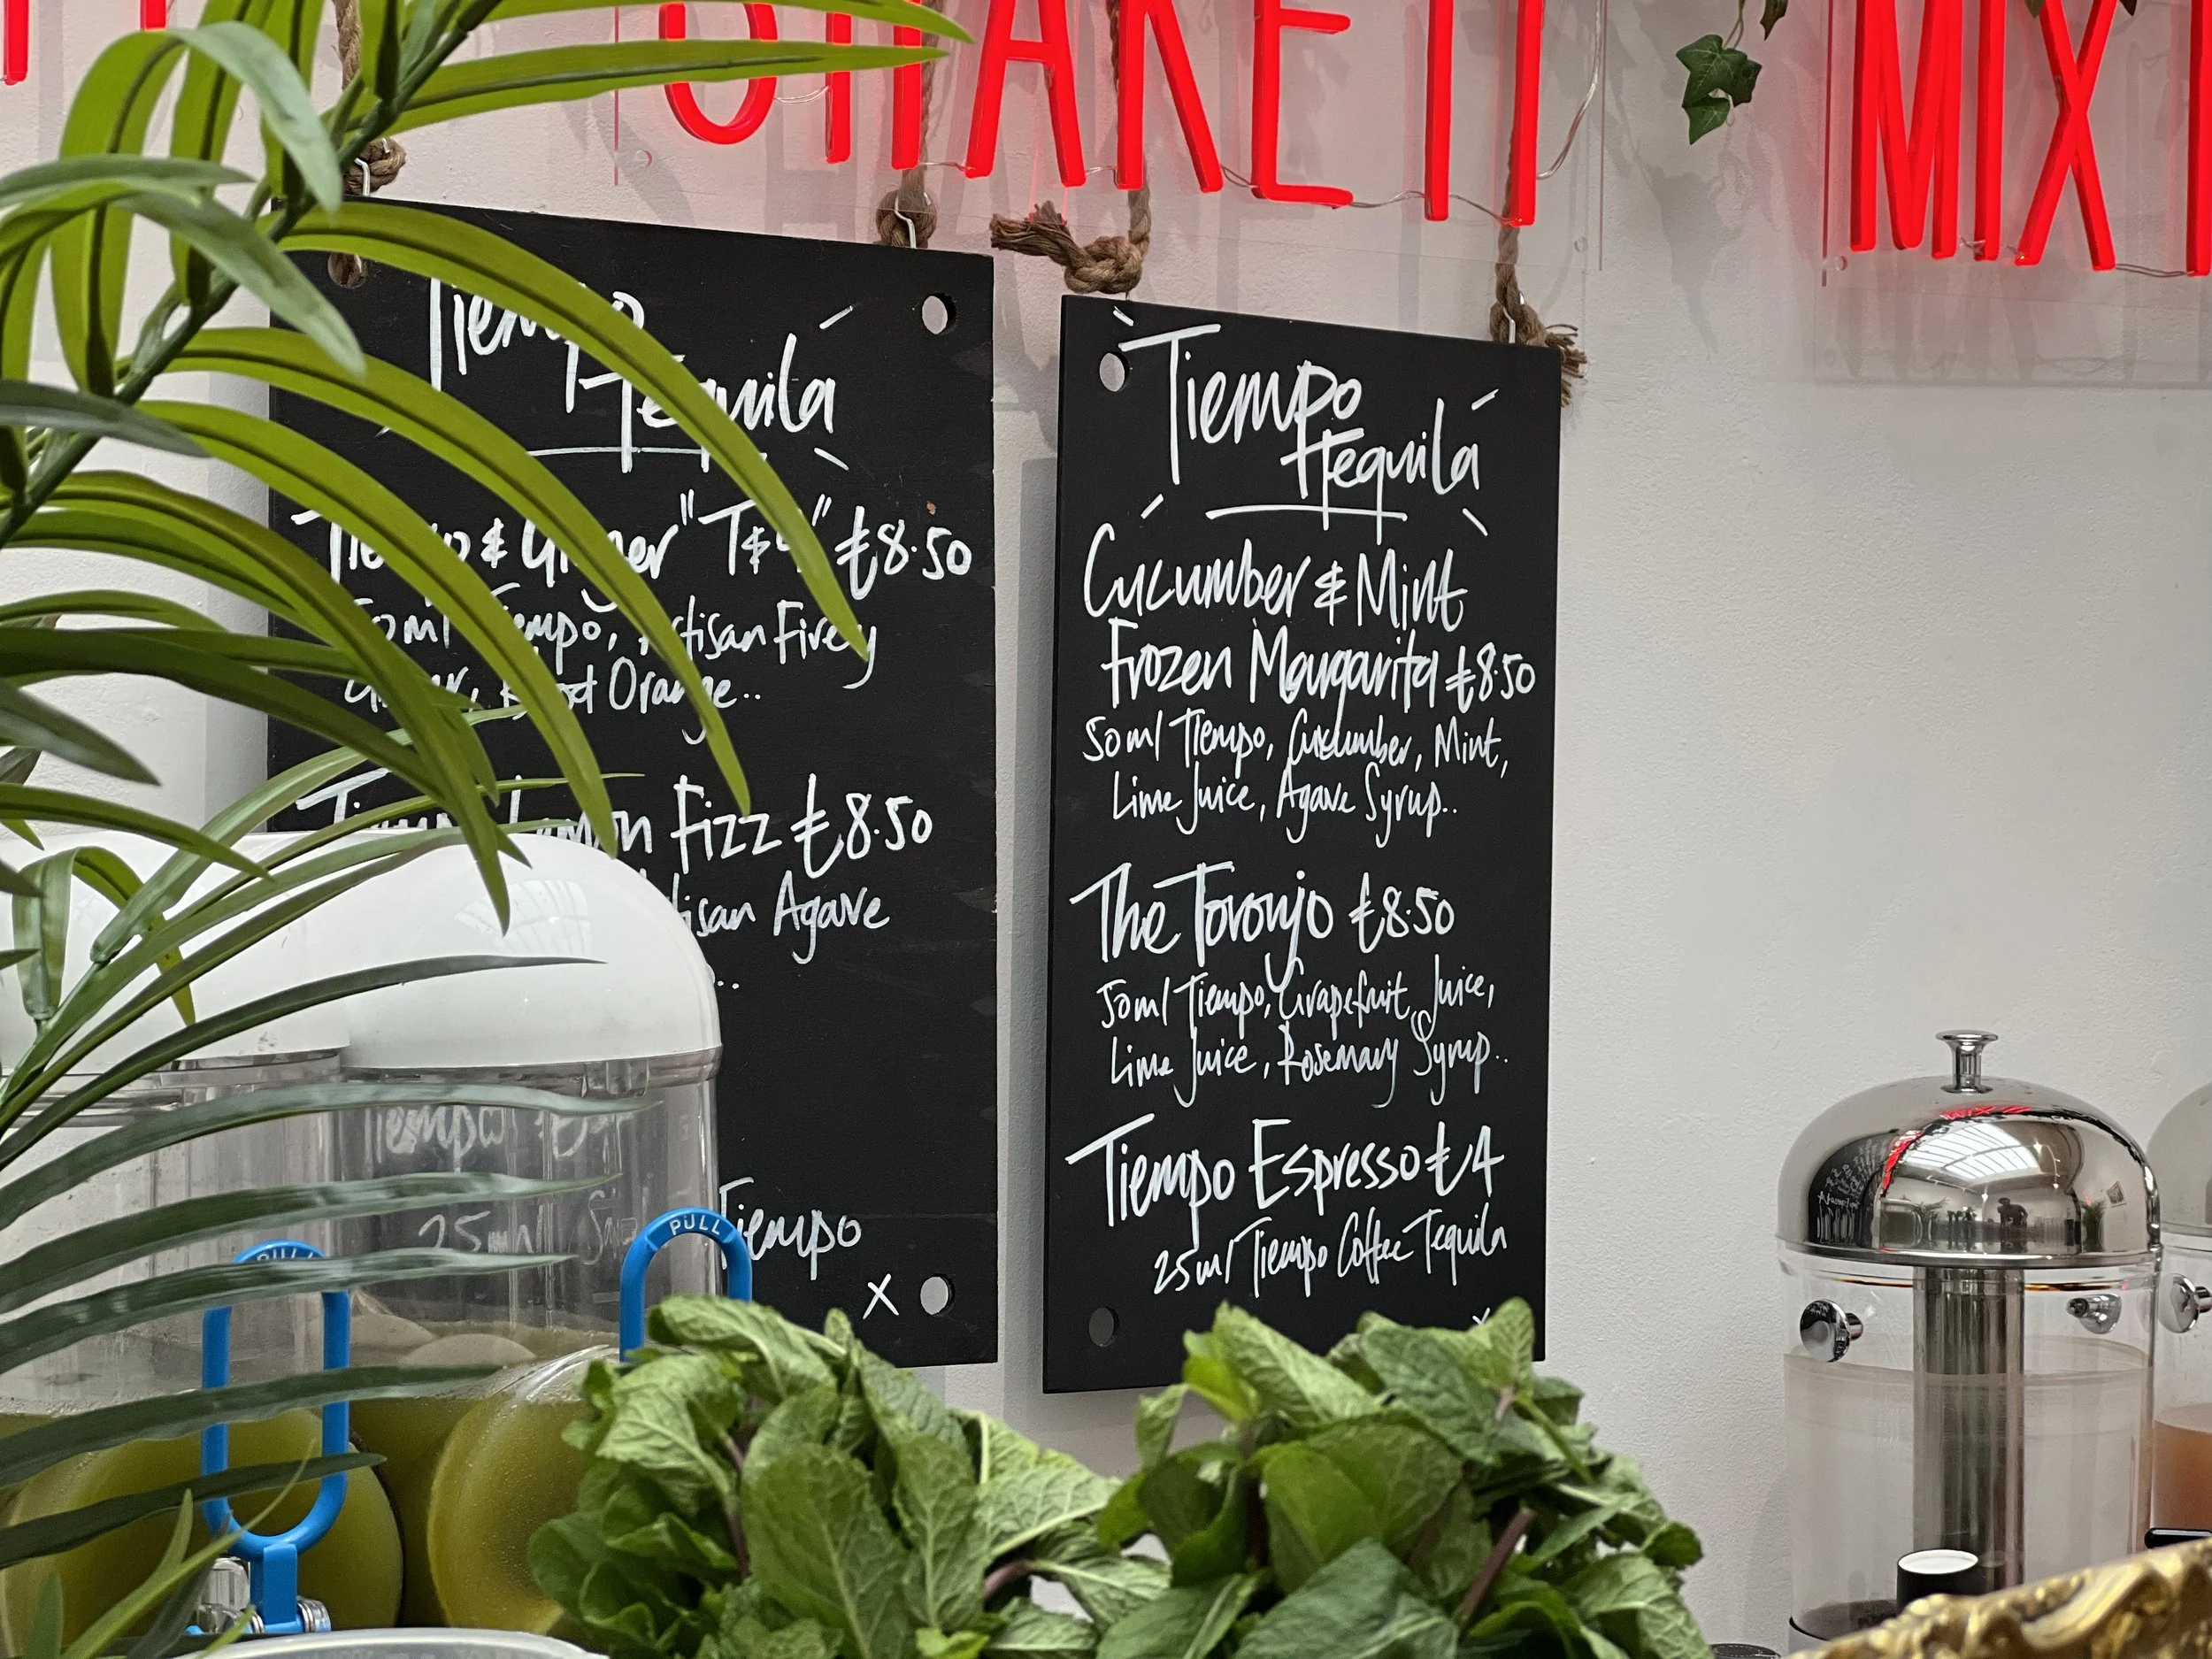 SHAKE IT
MIX I
Tiempo
Tequila
Tiempo & Ginger "T&G" £8.50
50ml Tiempo, Artisan Firey
Ginger, Blood Orange..
Tiempo Lemon Fizz £8.50
Artisan Agave
..
Tiempo
25ml
Tiempo
x
Tiempo
Tequila
Cucumber & Mint
Frozen Margarita £8.50
50ml Tiempo, Cucumber, Mint,
Lime Juice, Agave Syrup..
The Toronjo £8.50
50ml Tiempo, Grapefruit Juice,
Lime Juice, Rosemary Syrup..
Tiempo Espresso £4
25ml Tiempo Coffee Tequila
x
PULL
PULL